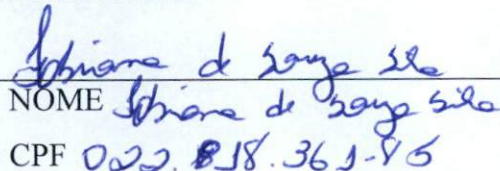 Fabiana de Souza Silva
NOME Fabiana de Souza Silva
CPF 022.818.361-85